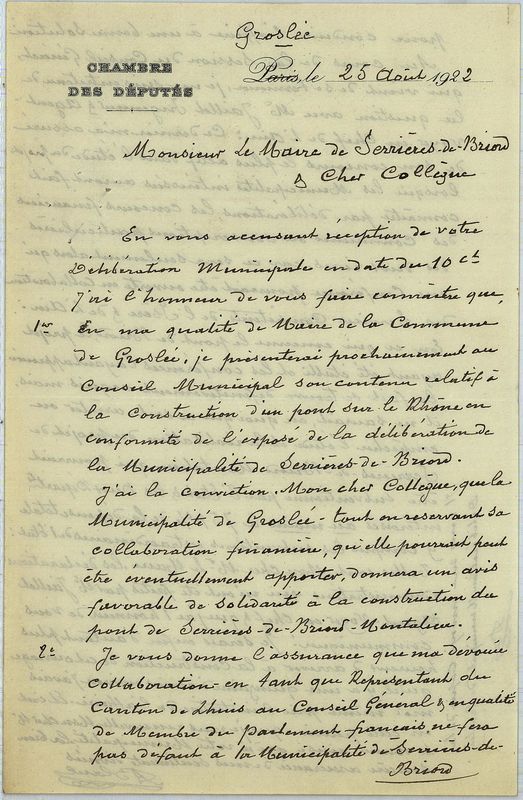 Groslée
CHAMBRE
DES DÉPUTÉS
Paris, le 25 Août 1922
Monsieur Le Maire de Serrières-de-Briord
& Cher Collègue
En vous accusant réception de votre
Délibération Municipale en date du 10 ct
J'ai l'honneur de vous faire connaître que,
1er En ma qualité de Maire de la Commune
de Groslée, je présenterai prochainement au
Conseil Municipal son contenu relatif à
la construction d'un pont sur le Rhône en
conformité de l'exposé de la délibération de
la Municipalité de Serrières-de-Briord.
J'ai la conviction, Mon cher Collègue, que la
Municipalité de Groslée - tout en reservant sa
collaboration financière, qu'elle pourrait peut
être éventuellement apporter, donnera un avis
favorable de solidarité à la construction du
pont de Serrières-de-Briord-Montalieu.
2e Je vous donne l'assurance que ma dévouée
collaboration en tant que Représentant du
Canton de Lhuis au Conseil Général & en qualité
de Membre du Parlement français ne fera
pas défaut à la Municipalité de Serrières-de-
Briord